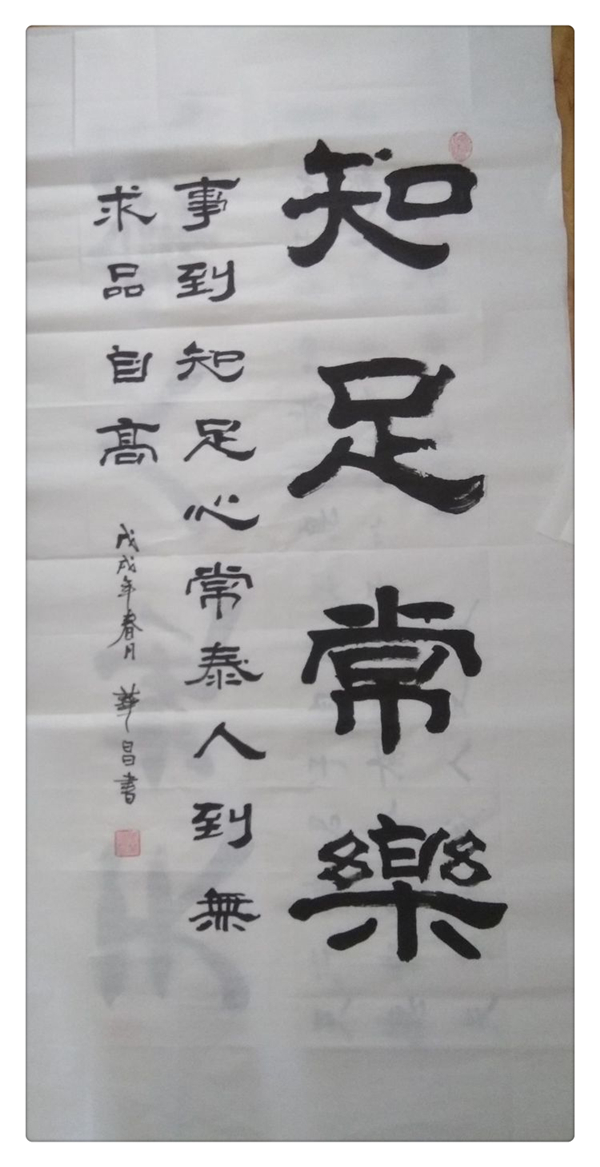 知足常樂
事到知足心常泰人到無
求品自高
戊戌年春月 華昌書